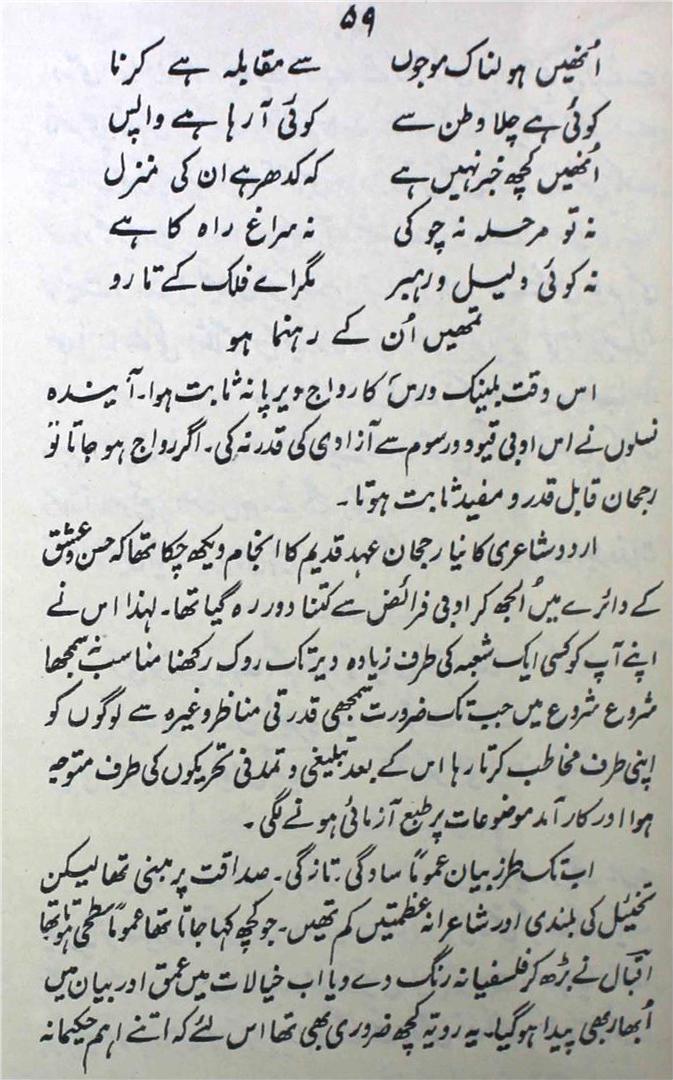 ۵۹
اُنھیں ہولناک موجوں سے مقابلہ ہے کرنا
کوئی ہے چلا وطن سے کوئی آ رہا ہے واپس
اُنھیں کچھ خبر نہیں ہے کہ کدھر ہے ان کی منزل
نہ تو مرحلہ نہ چوکی نہ سراغ راہ کا ہے
نہ کوئی دلیل و رہبر مگر اے فلک کے تارو
تمھیں اُن کے رہنما ہو
اس وقت بلینک ورس کا رواج دیرپا نہ ثابت ہوا۔ آیندہ
نسلوں نے اس ادبی قیود و رسوم سے آزادی کی قدر نہ کی۔ اگر رواج ہو جاتا تو
رجحان قابل قدر و مفید ثابت ہوتا۔
اردو شاعری کا نیا رجحان عہد قدیم کا انجام دیکھ چکا تھا کہ حسن و عشق
کے دائرے میں اُلجھ کر ادبی فرائض سے کتنا دور رہ گیا تھا۔ لہذا اس نے
اپنے آپ کو کسی ایک شعبہ کی طرف زیادہ دیر تک روک رکھنا مناسب نہ سمجھا
شروع شروع میں جب تک ضرورت سمجھی قدرتی مناظر وغیرہ سے لوگوں کو
اپنی طرف مخاطب کرتا رہا اس کے بعد تبلیغی و تمدنی تحریکوں کی طرف متوجہ
ہوا اور کار آمد موضوعات پر طبع آزمائی ہونے لگی۔
اب تک طرز بیان عموماً سادگی۔ تازگی۔ صداقت پر مبنی تھا لیکن
تخئیل کی بلندی اور شاعرانہ عظمتیں کم تھیں۔ جو کچھ کہا جاتا تھا عموماً سطحی ہوتا تھا
اقبال نے بڑھ کر فلسفیانہ رنگ دے دیا اب خیالات میں عمق اور بیان میں
اُبھار بھی پیدا ہو گیا۔ یہ رویہ کچھ ضروری بھی تھا اس لئے کہ اتنے اہم حکیمانہ